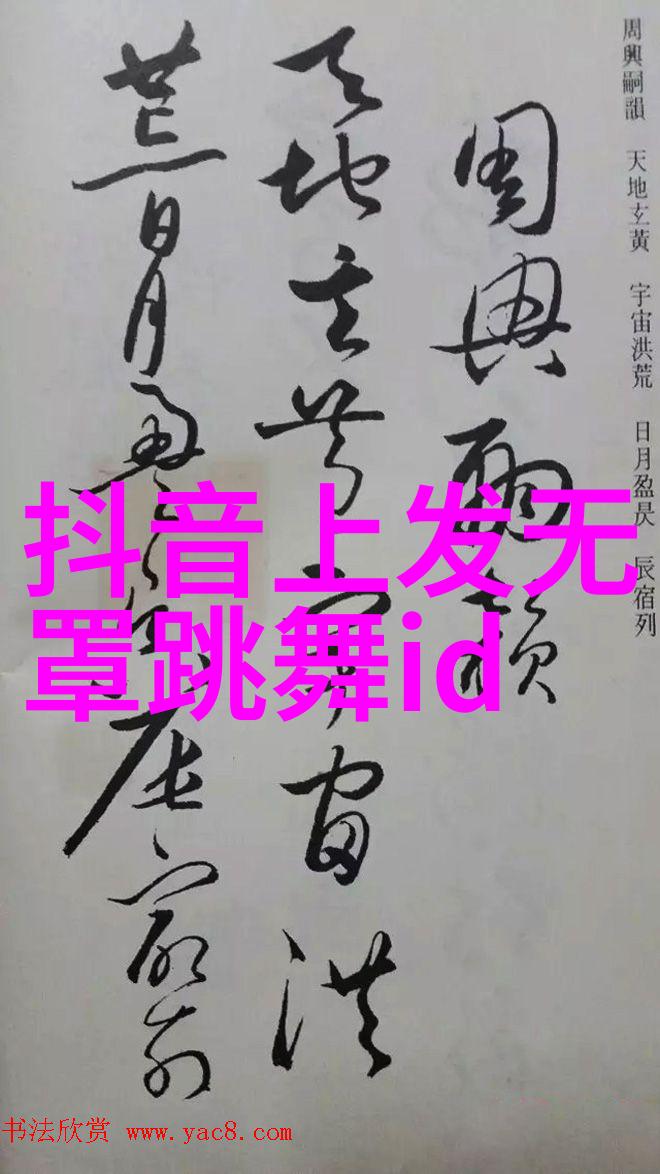 周興嗣韻 天地玄黃 宇宙洪荒 日月盈昃 辰宿列
周興嗣韻
天地玄黃宇宙洪
荒日月盈昃辰宿列
抖音上发无
罩跳舞id
书法欣赏 www.yac8.com